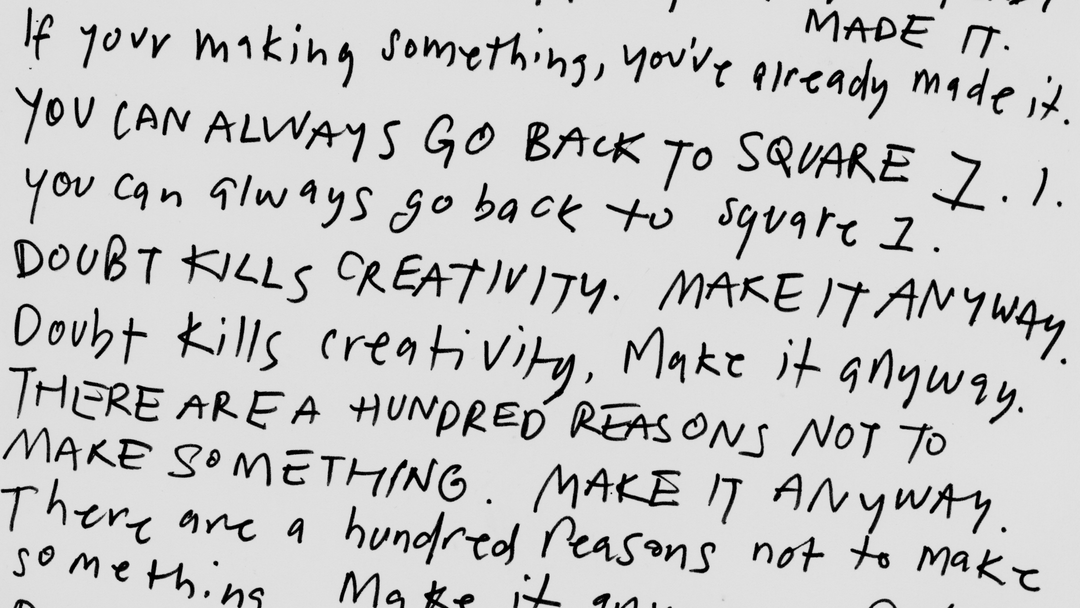 MADE IT.
If your making something, you've already made it.
YOU CAN ALWAYS GO BACK TO SQUARE 1. 1.
you can always go back to square 1.
DOUBT KILLS CREATIVITY. MAKE IT ANYWAY.
Doubt kills creativity, Make it anyway.
THERE ARE A HUNDRED REASONS NOT TO
MAKE SOMETHING. MAKE IT ANYWAY.
There are a hundred reasons not to make
something Make it